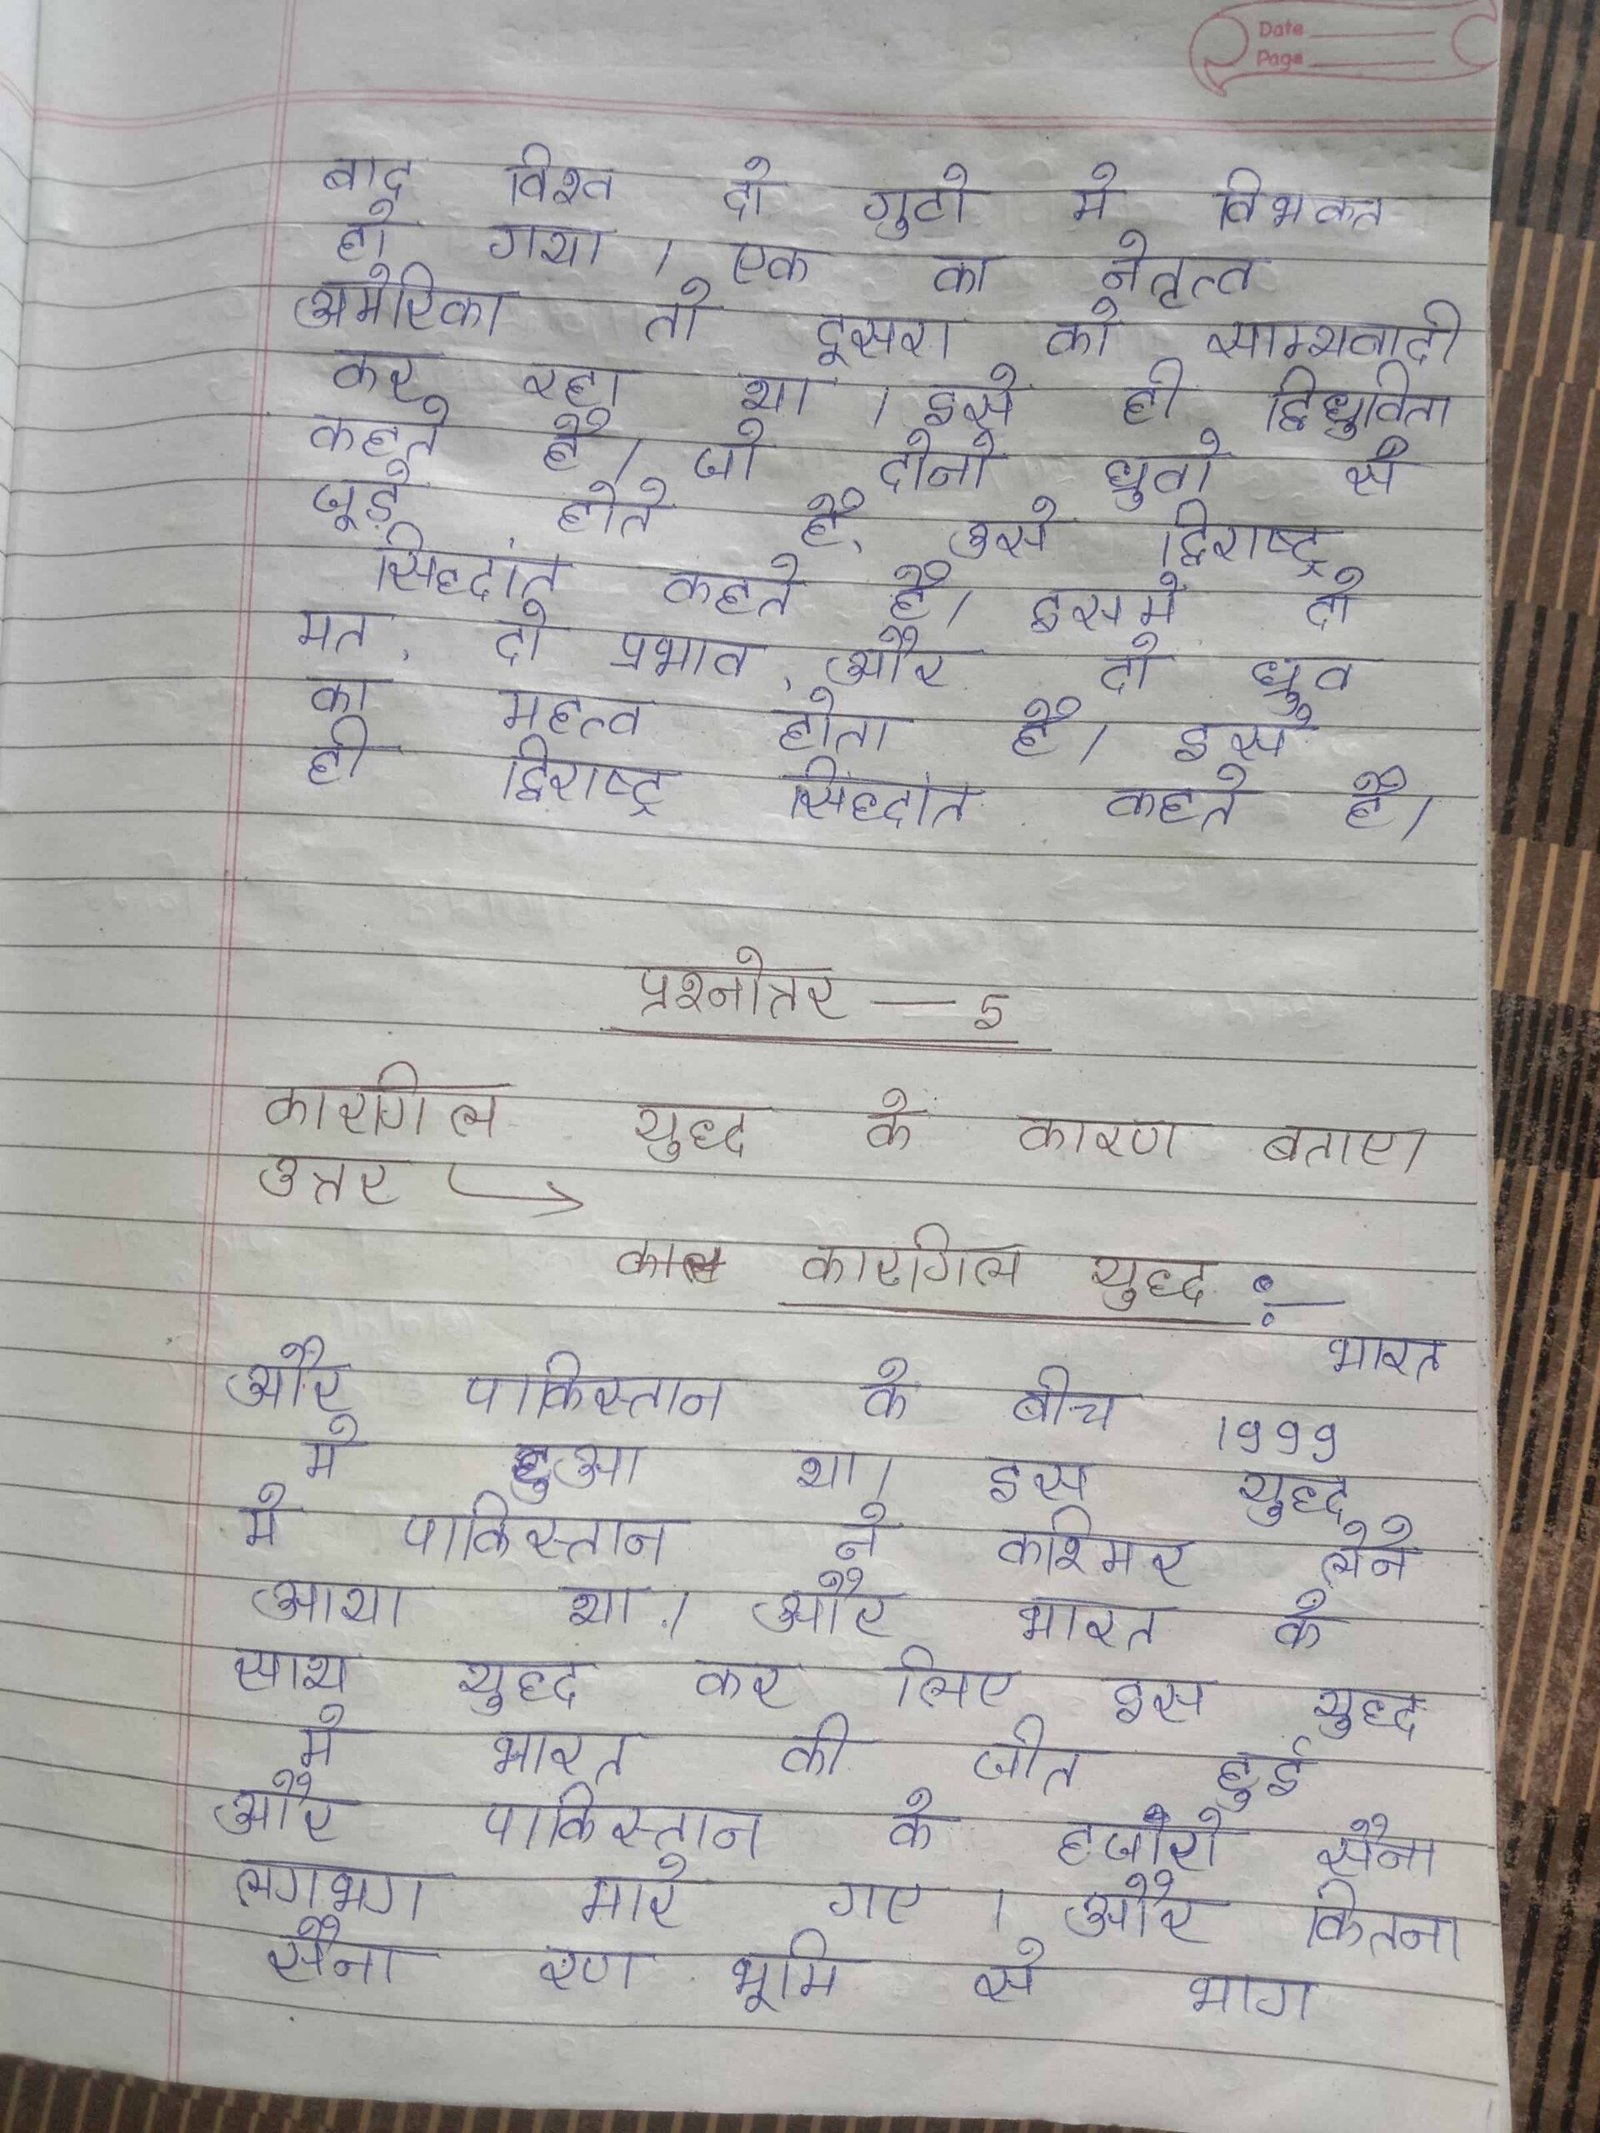 Date
Page
बाद विश्व दो गुटो मे विभकत
हो गया । एक का नेतृत्व
अमेरिका तो दूसरा को साम्यवादी
कर रहा था । इसे ही द्विध्रुविता
कहते है । जो दोनो ध्रुवो से
जूड़े होते है, उसे द्विराष्ट्र
सिध्दांत कहते है । इसमे दो
मत, दो प्रभाव, और दो ध्रुव
का महत्व होता है । इसे
ही द्विराष्ट्र सिध्दांत कहते है ।
प्रश्नोत्तर — 5
कारगिल युध्द के कारण बताए ।
उत्तर →
कारगिल युध्द :—
भारत
और पाकिस्तान के बीच 1999
मे हुआ था । इस युध्द
मे पाकिस्तान ने कश्मिर लेने
आया था । और भारत के
साथ युध्द कर लिए इस युध्द
मे भारत की जीत हुई
और पाकिस्तान के हजारो सैना
लगभग मारे गए । और कितना
सैना रण भूमि से भाग